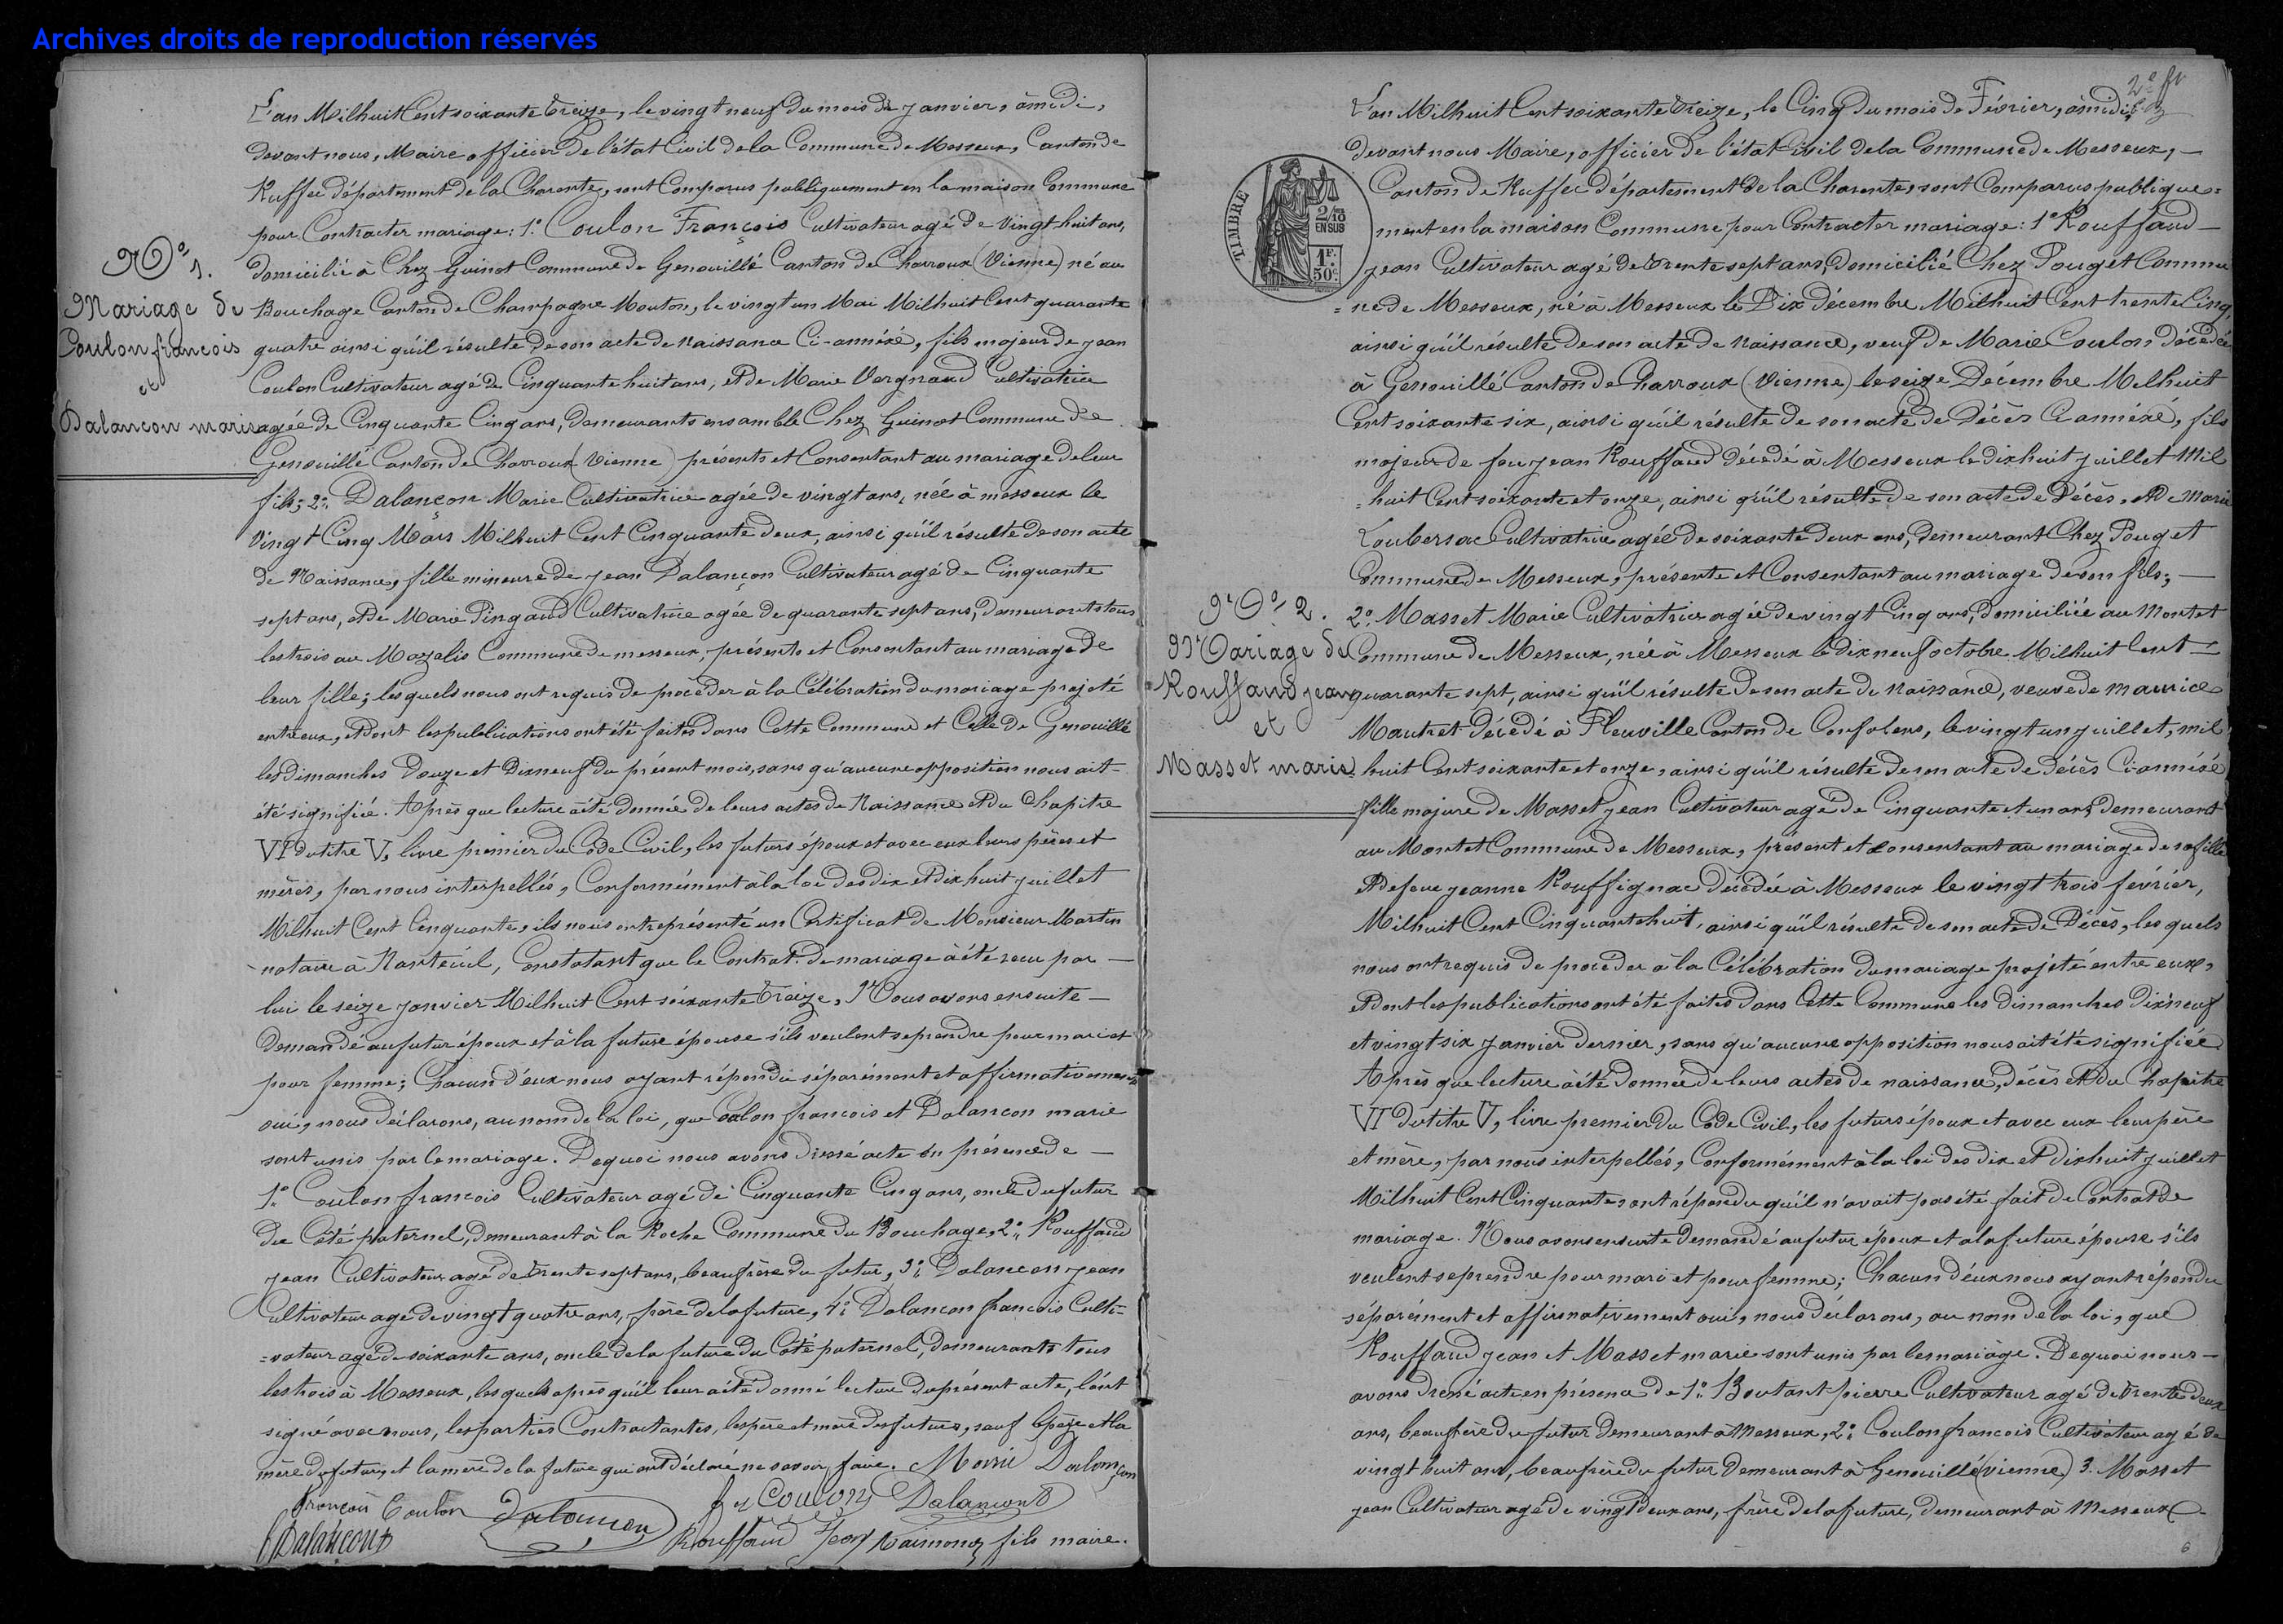 Archives droits de reproduction réservés
L'an Milhuit Cent soixante treize, le vingt neuf du mois de janvier, à midi,
devant nous, Maire officier de l'état Civil de la Commune de Messeux, Canton de
Ruffec département de la Charente, sont Comparus publiquement en la maison Commune
pour Contracter mariage: 1.° Coulon François Cultivateur agé de vingt huit ans,
N.° 1.
Mariage de
Coulon francois
et
Dalancon marie
domicilié à Chez Guinot Commune de Genouillé Canton de Charroux (Vienne) né au
Bouchage Canton de Champagne Mouton, le vingt un Mai Milhuit Cent quarante
quatre ainsi qu'il résulte de son acte de naissance Ci-annéxé, fils majeur de jean
Coulon Cultivateur agé de Cinquante huit ans, et de Marie Vergnaud Cultivatrice
agée de Cinquante Cinq ans, demeurants ensemble Chez Guinot Commune de
Genouillé Canton de Charroux (Vienne) présents et Consentant au mariage de leur
fils; 2.° Dalançon Marie Cultivatrice agée de vingt ans, née à messeux le
vingt Cinq Mars Milhuit Cent Cinquante deux, ainsi qu'il résulte de son acte
de Naissance, fille mineure de jean Dalançon Cultivateur agé de Cinquante
sept ans, et de Marie Pingaud Cultivatrice agée de quarante sept ans, demeurants tous
les trois au Mazelis Commune de messeux, présents et Consentant au mariage de
leur fille; lesquels nous ont requis de procéder à la Célébration du mariage projeté
entre eux, et dont les publications ont été faites dans Cette Commune et Celle de Genouillé
les dimanches Douze et Dixneuf du présent mois, sans qu'aucune opposition nous ait
été signifiée. Après que lecture a été donnée de leurs actes de Naissance et du Chapitre
VI du titre V, livre premier du Code Civil, les futurs époux et avec eux leurs pères et
mères, par nous interpellés, Conformément à la loi des dix et dix huit juillet
Milhuit Cent Cinquante, ils nous ont représenté un Certificat de Monsieur Martin
notaire à Nanteuil, Constatant que le Contrat de mariage a été recu par —
lui le seize janvier Milhuit Cent soixante treize, Nous avons ensuite —
demandé au futur époux et à la future épouse s'ils veulent se prendre pour mari et
pour femme; Chacun d'eux nous ayant répondu séparément et affirmativement
oui, nous déclarons, au nom de la loi, que Coulon francois et Dalancon marie
sont unis par le mariage. De quoi nous avons dressé acte en présence de —
1.° Coulon francois Cultivateur agé de Cinquante Cinq ans, oncle du futur
du Côté paternel, demeurant à la Roche Commune du Bouchage, 2.° Rouffaud
jean Cultivateur agé de trente sept ans, beaufrère du futur, 3.° Dalancon jean
Cultivateur agé de vingt quatre ans, frère de la future, 4.° Dalancon francois Culti=
=vateur agé de soixante ans, oncle de la future du Côté paternel, demeurants tous
les trois à Messeux, lesquels après qu'il leur a été donné lecture du présent acte, l'ont
signé avec nous, les parties Contractantes, les père et mère des futurs, sauf le père et la
mère du futur, et la mère de la future qui ont déclaré ne savoir faire. Marie Dalançon
François Coulon Dalancon fs Coulon Dalancont
Dalancont Rouffaud Jean Raimond fils maire.
L'an Milhuit Cent soixante treize, le Cinq du mois de Février, à midi,
devant nous Maire, officier de l'état Civil de la Commune de Messeux, —
TIMBRE
2/10
EN SUS
1 F.
50 c.
Canton de Ruffec département de la Charente, sont Comparus publique=
ment en la maison Commune pour Contracter mariage: 1.° Rouffaud —
jean Cultivateur agé de trente sept ans, domicilié Chez Pouget Commu
=ne de Messeux, né à Messeux le Dix décembre Milhuit Cent trente Cinq,
ainsi qu'il résulte de son acte de naissance, veuf de Marie Coulon décédée
à Genouillé Canton de Charroux (Vienne) le seize Décembre Milhuit
Cent soixante six, ainsi qu'il résulte de son acte de Décès Ci annéxé, fils
majeur de feu jean Rouffaud décédé à Messeux le dix huit juillet Mil
=huit Cent soixante et onze, ainsi qu'il résulte de son acte de Décès, et de Marie
Loubersac Cultivatrice agée de soixante deux ans, demeurant Chez Pouget
Commune de Messeux, présente et Consentant au mariage de son fils; —
N.° 2.
Mariage de
Rouffaud jean
et
Masset marie
2.° Masset Marie Cultivatrice agée de vingt Cinq ans, domiciliée au Montet
Commune de Messeux, née à Messeux le dix neuf octobre Milhuit Cent —
quarante sept, ainsi qu'il résulte de son acte de naissance, veuve de maurice
Mautret décédé à Pleuville Canton de Confolens, le vingt un juillet, mil
huit Cent soixante et onze, ainsi qu'il résulte de son acte de décès Ci annéxé
fille majure de Masset jean Cultivateur agé de Cinquante et un ans, demeurant
au Montet Commune de Messeux, présent et Consentant au mariage de sa fille
et de feue jeanne Rouffignac décédée à Messeux le vingt trois février,
Milhuit Cent Cinquante huit, ainsi qu'il résulte de son acte de Décès, les quels
nous ont requis de proceder à la Célébration du mariage projeté entre eux,
et dont les publications ont été faites dans Cette Commune les dimanches Dix neuf
et vingt six janvier dernier, sans qu'aucune opposition nous ait été signifiée.
Après que lecture a été donnée de leurs actes de naissance, décès et du Chapitre
VI du titre V, livre premier du Code Civil, les futurs époux et avec eux leurs père
et mère, par nous interpellés, Conformément à la loi des dix et dix huit juillet
Milhuit Cent Cinquante, ont répondu qu'il n'avait pas été fait de Contrat de
mariage. Nous avons ensuite demandé au futur époux et a la future épouse s'ils
veulent se prendre pour mari et pour femme; Chacun d'eux nous ayant répondu
séparément et affirmativement oui, nous déclarons, au nom de la loi, que
Rouffaud jean et Masset marie sont unis par le mariage. De quoi nous —
avons dressé acte en présence de 1.° Boutant pierre Cultivateur agé de trente deux
ans, beaufrère du futur demeurant à Messeux, 2.° Coulon francois Cultivateur agé de
vingt huit ans, beaufrère du futur demeurant à Genouillé (vienne) 3. Masset
jean Cultivateur agé de vingt deux ans, frère de la future, demeurant à Messeux
6